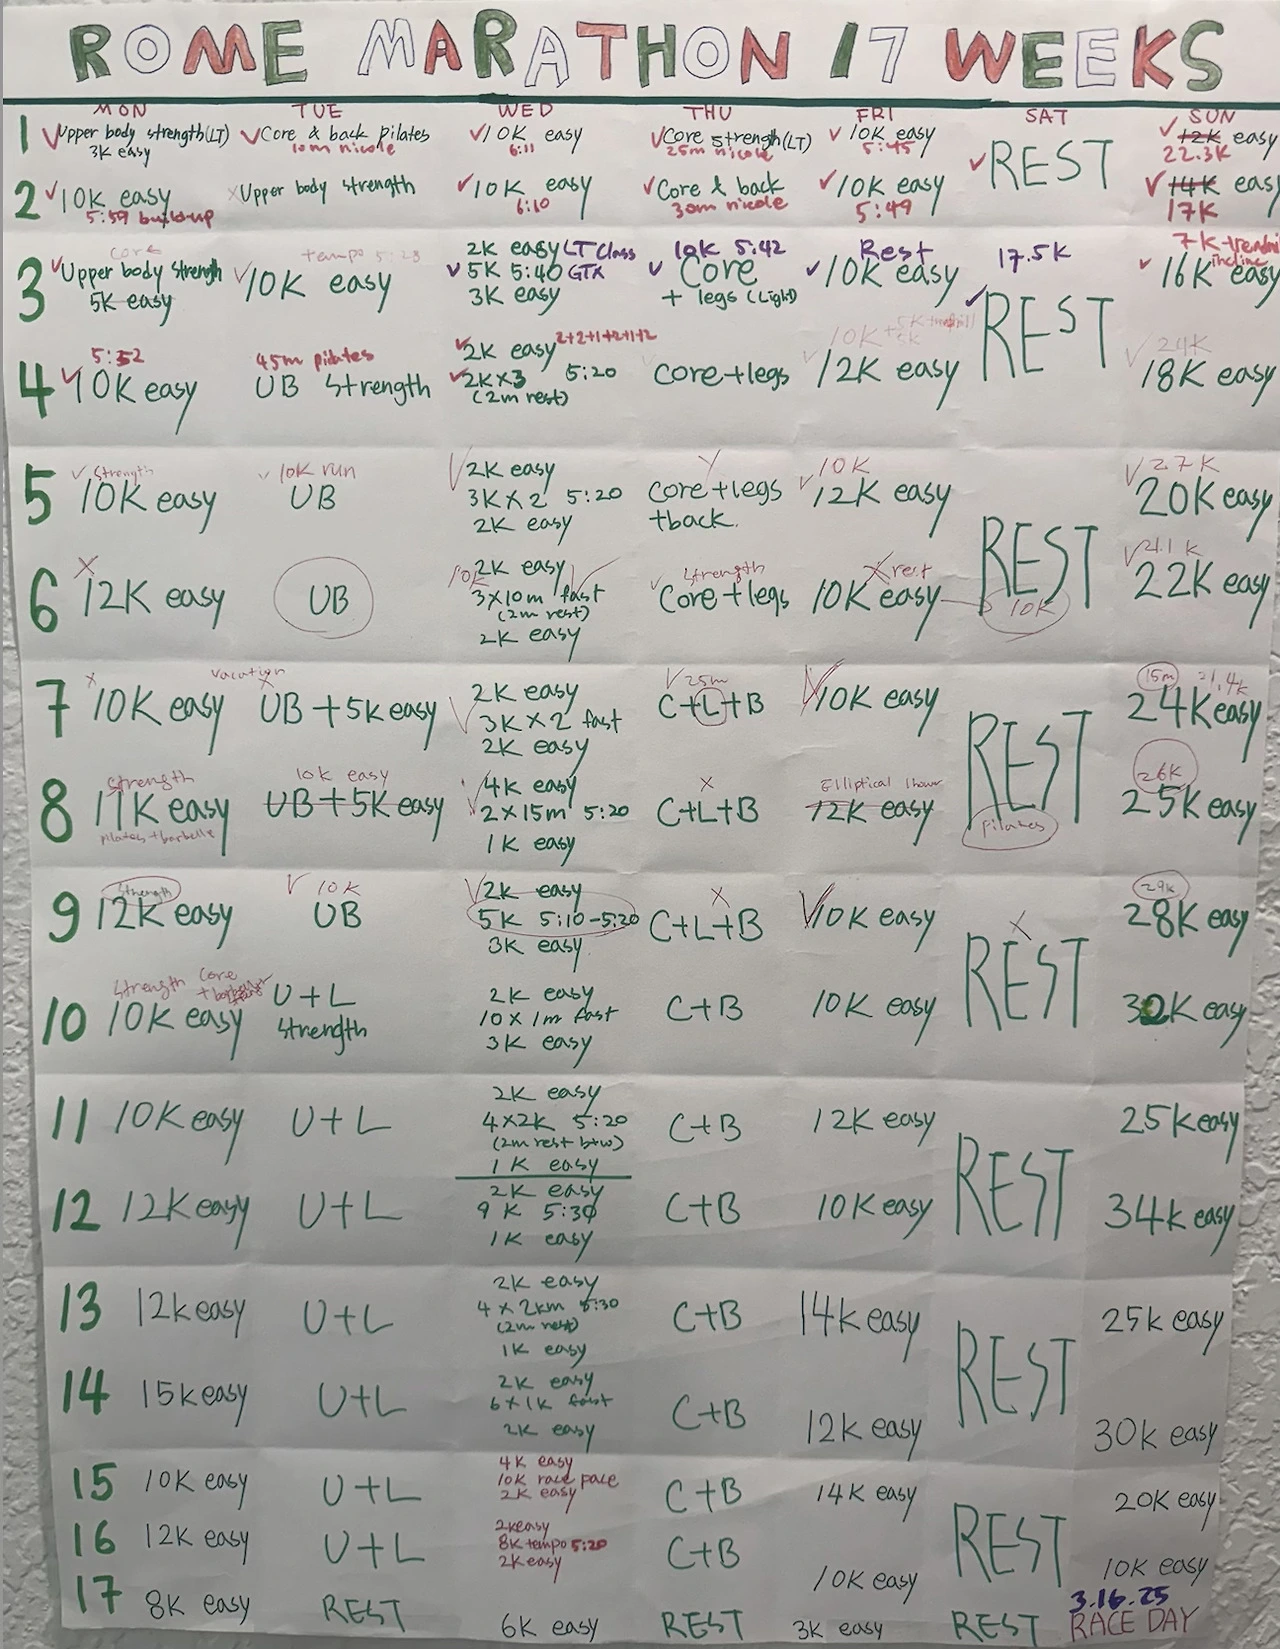 ROME MARATHON 17 WEEKS
MON TUE WED THU FRI SAT SUN
1
Upper body strength(LT)
3K easy
Core & back pilates
10m nicole
10K easy
6:11
Core strength(LT)
25m nicole
10K easy
5:45
REST
12K easy
22.3K
2
10K easy
5:59 build-up
Upper body strength
10K easy
6:10
Core & back
30m nicole
10K easy
5:49
14K easy
17K
3
core
Upper body strength
5K easy
tempo 5:28
10K easy
2K easy LT Class
5K 5:40 GTX
3K easy
10K 5:42
Core
+ legs (Light)
Rest
10K easy
17.5K
REST
7K treadmill
incline
16K easy
4
5:52
10K easy
45m pilates
UB strength
2K easy 2+2+1+2+1+2
2K×3 5:20
(2m rest)
Core+legs
10K + 5K treadmill
5K
12K easy
24K
18K easy
5
strength
10K easy
10K run
UB
2K easy
3K×2 5:20
2K easy
Core+legs
+back.
10K
12K easy
REST
27K
20K easy
6
12K easy
UB
2K easy
10K
3×10m fast
(2m rest)
2K easy
Strength
Core+legs
rest
10K easy
10K
21.1K
22K easy
7
10K easy
vacation
UB+5K easy
2K easy
3K×2 fast
2K easy
25m
C+L+B
10K easy
REST
15m 21.4K
24K easy
8
strength
11K easy
pilates+barbelle
10K easy
UB+5K easy
4K easy
2×15m 5:20
1K easy
C+L+B
Elliptical 1hour
12K easy
pilates
26K
25K easy
9
strength
12K easy
10K
UB
2K easy
5K 5:10-5:20
3K easy
C+L+B
10K easy
REST
29K
28K easy
10
strength core
10K easy
U+L
strength
2K easy
10×1m fast
3K easy
C+B
10K easy
32K easy
11
10K easy
U+L
2K easy
4×2K 5:20
(2m rest btw)
1K easy
C+B
12K easy
REST
25K easy
12
12K easy
U+L
2K easy
9K 5:30
1K easy
C+B
10K easy
34K easy
13
12K easy
U+L
2K easy
4×2km 5:30
(2m rest)
1K easy
C+B
14K easy
REST
25K easy
14
15K easy
U+L
2K easy
6×1K fast
2K easy
C+B
12K easy
30K easy
15
10K easy
U+L
4K easy
10K race pace
2K easy
C+B
14K easy
REST
20K easy
16
12K easy
U+L
2K easy
8K tempo 5:20
2K easy
C+B
10K easy
10K easy
17
8K easy
REST
6K easy
REST
3K easy
REST
3.16.25
RACE DAY